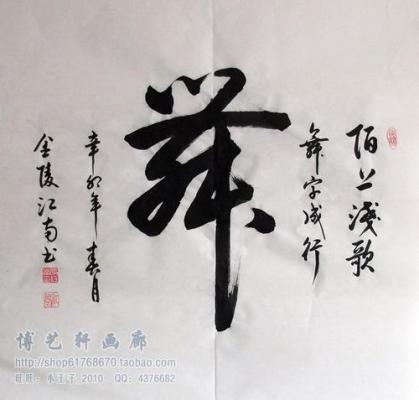 陌上淺歌
舞字成行
舞
辛卯年春月
金陵江南书
博艺轩画廊
http://shop61768670.taobao.com
旺旺：小王子_2010 QQ：4376682